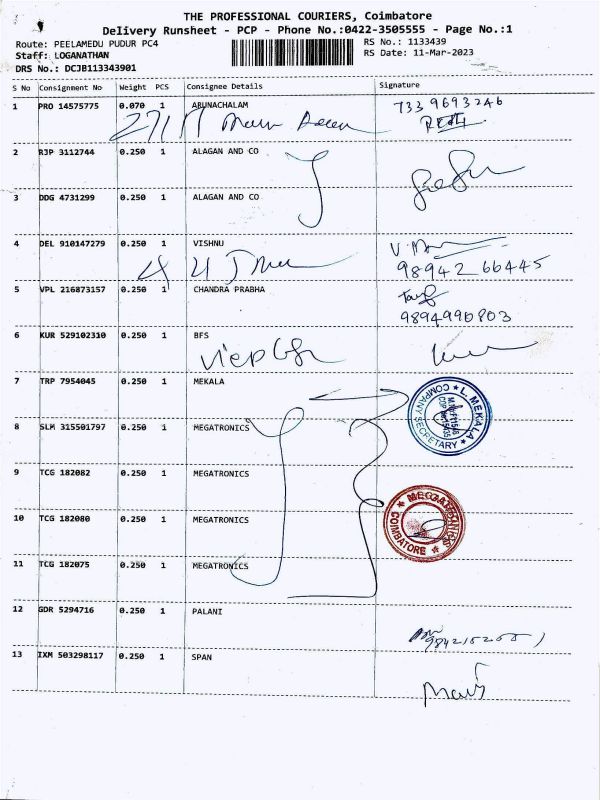 THE PROFESSIONAL COURIERS, Coimbatore
Delivery Runsheet - PCP - Phone No.:0422-3505555 - Page No.:1
Route: PEELAMEDU PUDUR PC4
RS No.: 1133439
Staff: LOGANATHAN
RS Date: 11-Mar-2023
DRS No.: DCJB113343901
S No Consignment No Weight PCS Consignee Details Signature
1 PRO 14575775 0.070 1 ARUNACHALAM 733 9693246
2 RJP 3112744 0.250 1 ALAGAN AND CO
3 DDG 4731299 0.250 1 ALAGAN AND CO
4 DEL 910147279 0.250 1 VISHNU
98942 66445
5 VPL 216873157 0.250 1 CHANDRA PRABHA
9894990803
6 KUR 529102310 0.250 1 BFS
7 TRP 7954045 0.250 1 MEKALA
L. MEKALA
COMPANY SECRETARY
8 SLM 315501797 0.250 1 MEGATRONICS
9 TCG 182082 0.250 1 MEGATRONICS
10 TCG 182080 0.250 1 MEGATRONICS
COIMBATORE
11 TCG 182075 0.250 1 MEGATRONICS
12 GDR 5294716 0.250 1 PALANI
13 IXM 503298117 0.250 1 SPAN